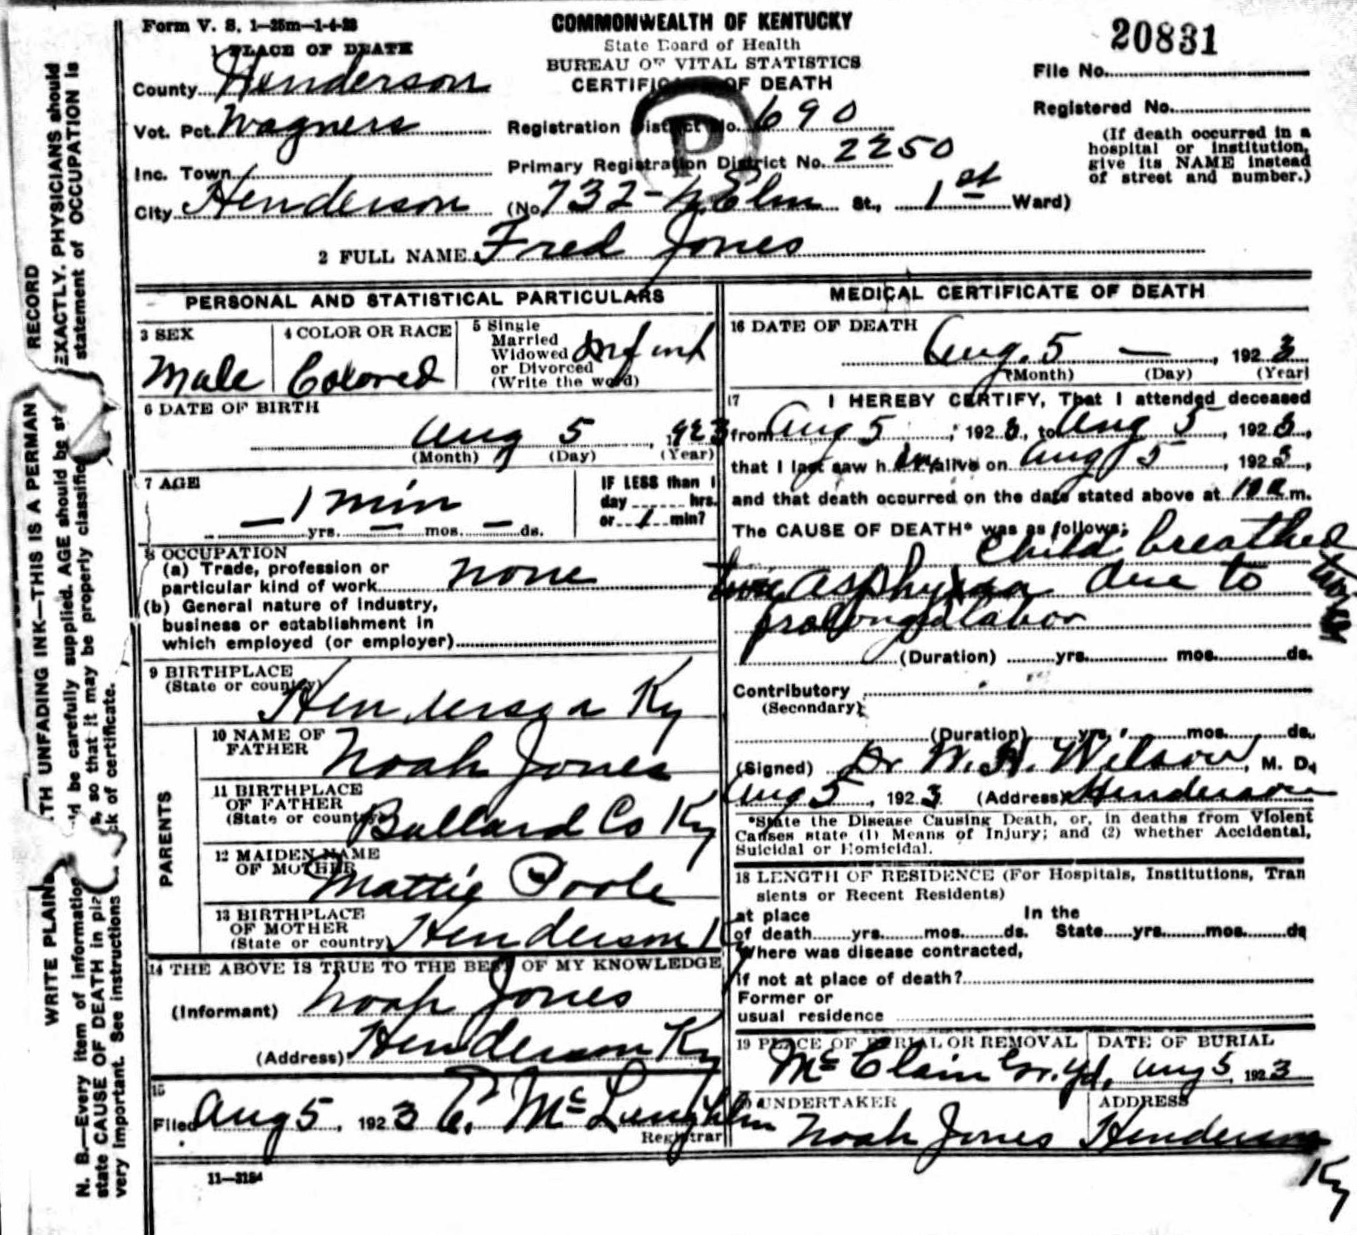 Form V. S. 1—25m—1-4-23
COMMONWEALTH OF KENTUCKY
State Board of Health
BUREAU OF VITAL STATISTICS
CERTIFICATE OF DEATH
20831
File No.
Registered No.
(If death occurred in a
hospital or institution,
give its NAME instead
of street and number.)
1 PLACE OF DEATH
County Henderson
Vot. Pct. Wagners
Inc. Town
City Henderson
Registration District No. 690
P
Primary Registration District No. 2250
(No 732- N. Elm St., 1st Ward)
2 FULL NAME Fred Jones
PERSONAL AND STATISTICAL PARTICULARS
3 SEX
Male
4 COLOR OR RACE
Colored
5 Single
Married
Widowed
or Divorced
(Write the word)
Infant
6 DATE OF BIRTH
Aug 5, 1923
(Month) (Day) (Year)
7 AGE
1 min
— yrs. — mos. — ds.
IF LESS than 1
day hrs.
or 1 min?
8 OCCUPATION
(a) Trade, profession or
particular kind of work none
(b) General nature of industry,
business or establishment in
which employed (or employer)
9 BIRTHPLACE
(State or country)
Henderson Ky
PARENTS
10 NAME OF
FATHER
Noah Jones
11 BIRTHPLACE
OF FATHER
(State or country)
Ballard Co Ky
12 MAIDEN NAME
OF MOTHER
Mattie Poole
13 BIRTHPLACE
OF MOTHER
(State or country)
Henderson Ky
14 THE ABOVE IS TRUE TO THE BEST OF MY KNOWLEDGE
(Informant) Noah Jones
(Address) Henderson Ky
15
Filed Aug 5, 1923 E. McLaughlin
Registrar
11—3184
MEDICAL CERTIFICATE OF DEATH
16 DATE OF DEATH
Aug. 5 —, 1923
(Month) (Day) (Year)
17 I HEREBY CERTIFY, That I attended deceased
from Aug 5, 1923, to Aug 5, 1923,
that I last saw him alive on Aug 5, 1923,
and that death occurred on the date stated above at m.
The CAUSE OF DEATH* was as follows:
Child breathed
asphyxia due to
prolonged labor
(Duration) yrs. mos. ds.
Contributory
(Secondary)
(Duration) yrs. mos. ds.
(Signed) Dr W. H. Wilson, M. D.
Aug 5, 1923 (Address) Henderson
*State the Disease Causing Death, or, in deaths from Violent
Causes state (1) Means of Injury; and (2) whether Accidental,
Suicidal or Homicidal.
18 LENGTH OF RESIDENCE (For Hospitals, Institutions, Tran
sients or Recent Residents)
at place In the
of death yrs. mos. ds. State yrs. mos. ds
Where was disease contracted,
if not at place of death?
Former or
usual residence
19 PLACE OF BURIAL OR REMOVAL
McClain Gr. Yd.
DATE OF BURIAL
Aug 5, 1923
20 UNDERTAKER
Noah Jones
ADDRESS
Henderson
Ky
WRITE PLAIN TH UNFADING INK—THIS IS A PERMAN RECORD
N. B.—Every item of information d be carefully supplied. AGE should be st EXACTLY. PHYSICIANS should
state CAUSE OF DEATH in pla s, so that it may be properly classifie statement of OCCUPATION is
very important. See instructions ck of certificate.